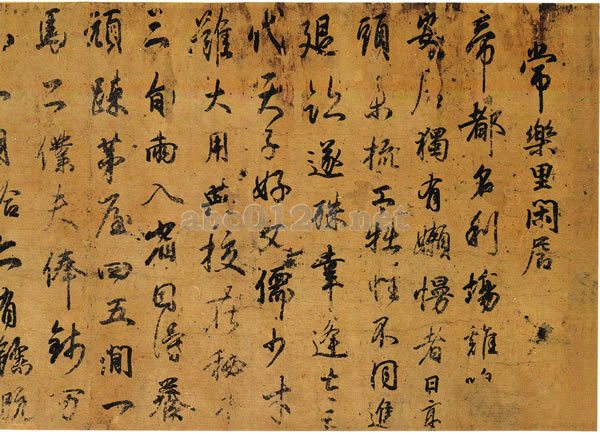 常樂里閑居
帝都名利場雞鳴
安居獨有嬾慢者日高
頭未梳工拙性不同進
退跡遂殊幸逢太平
代天子好文儒少才
難大用典校在秘書
三旬兩入省因得養
頑踈茅屋四五間一
馬二僕夫俸錢万
月給亦有餘既
abc0120.net